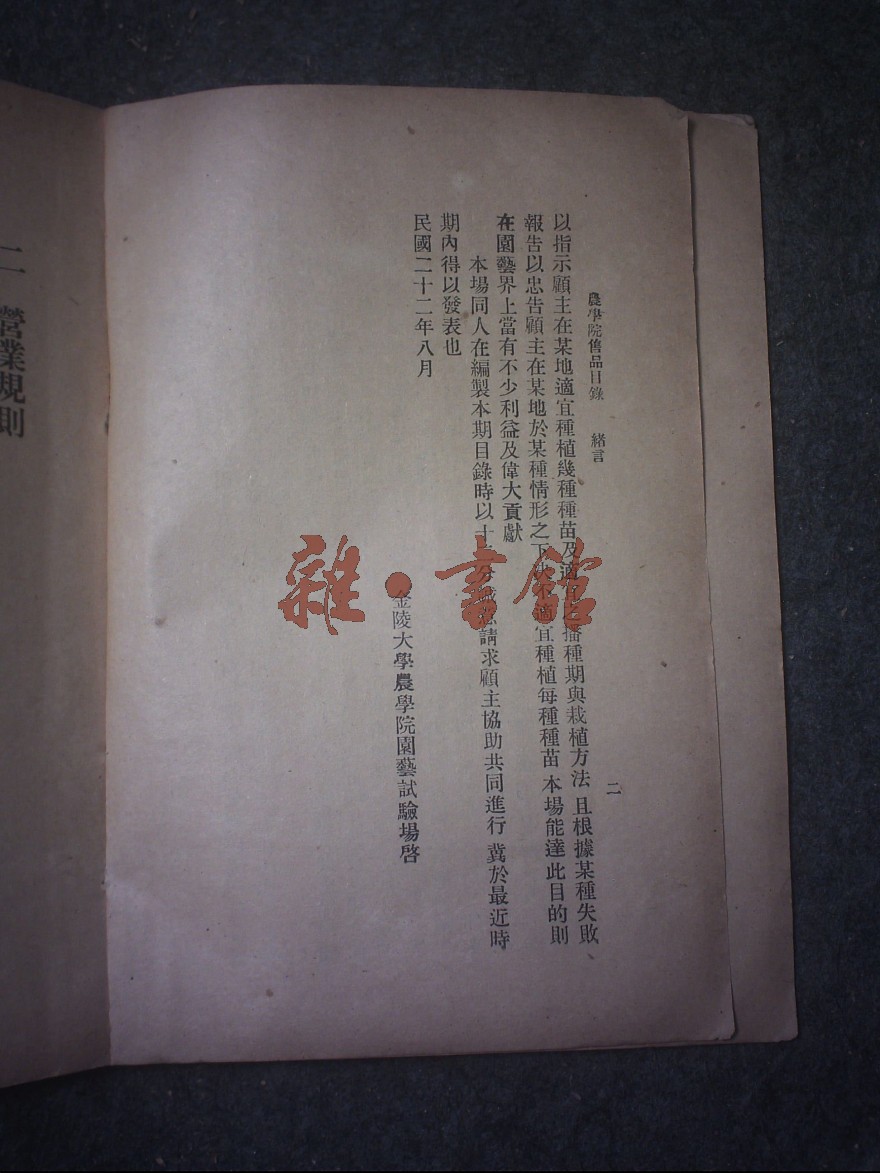 農學院售品目錄 緒言 二
以指示顧主在某地適宜種植幾種種苗及適播種期與栽植方法 且根據某種失敗
報告以忠告顧主在某地於某種情形之下不適宜種植每種種苗 本場能達此目的則
在園藝界上當有不少利益及偉大貢獻
本場同人在編製本期目錄時以十分請求顧主協助共同進行 冀於最近時
期內得以發表也
民國二十二年八月
金陵大學農學院園藝試驗場啓
二 營業規則
雜·書館